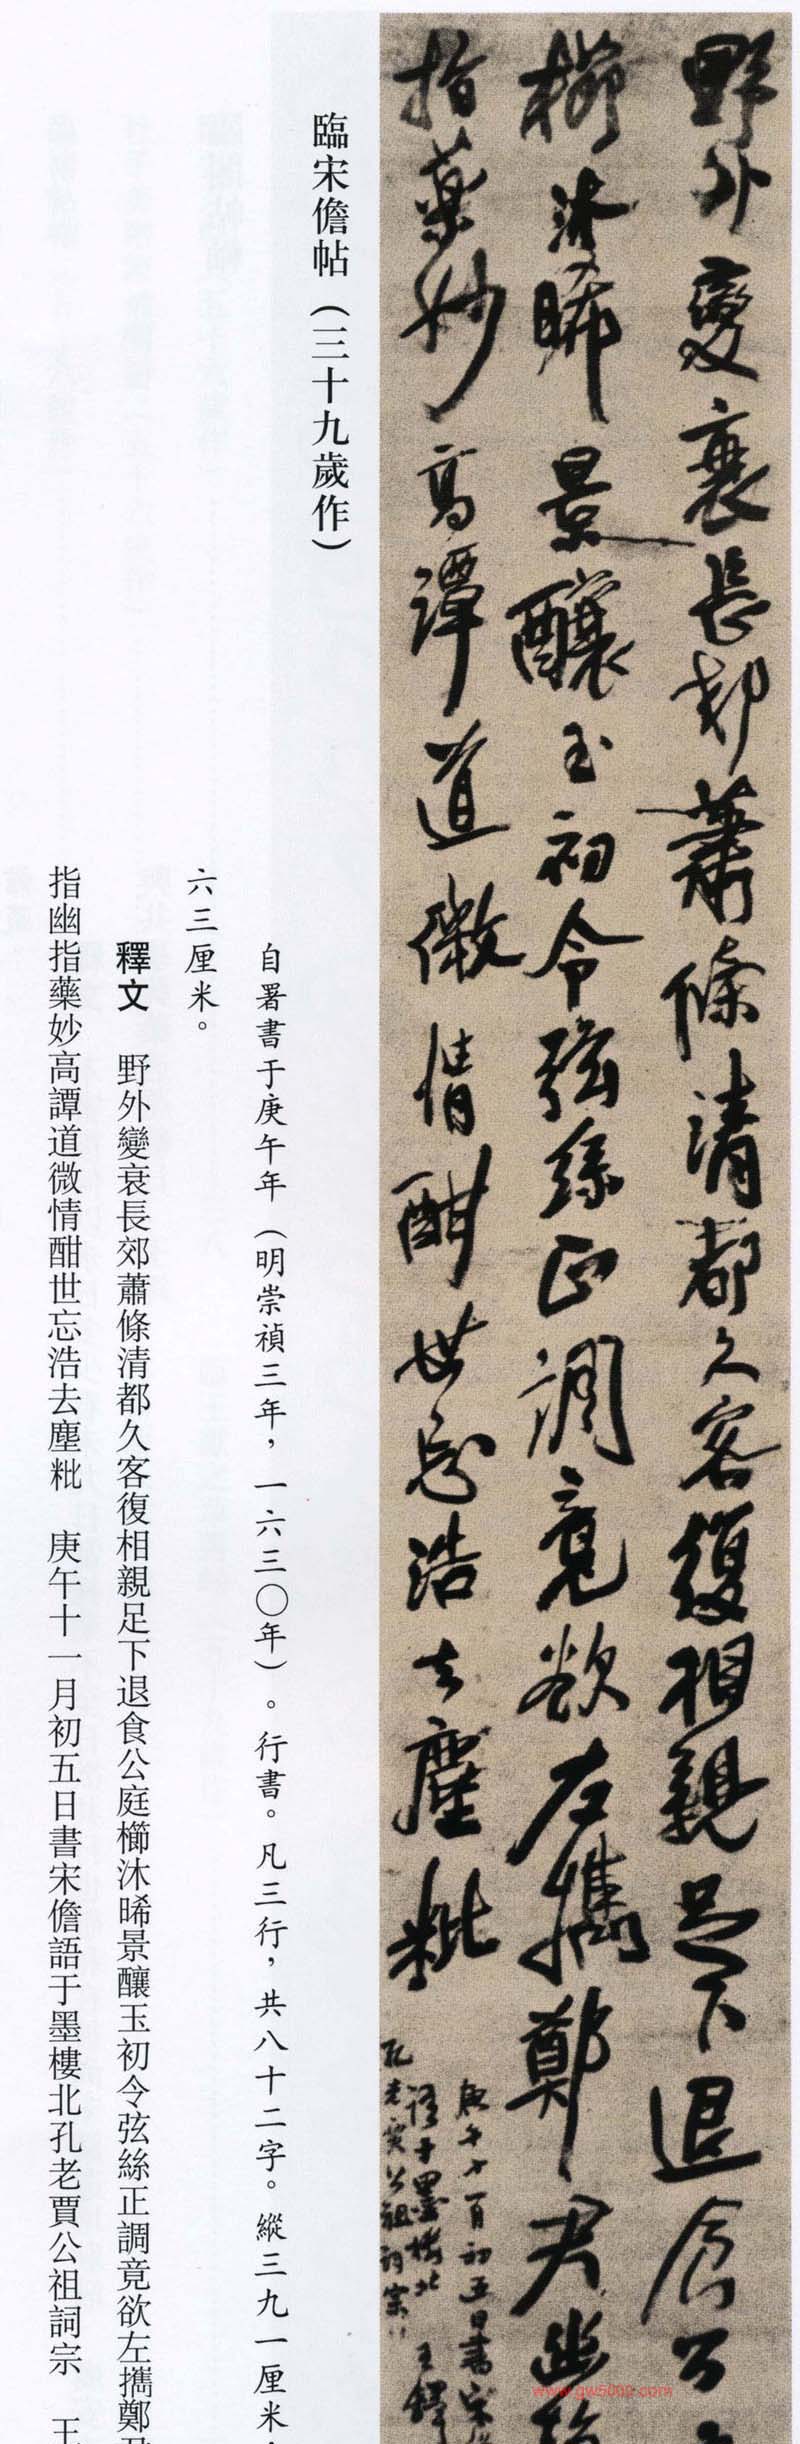 野外變衰長郊蕭條清都久客復相親足下退食公
櫛沐晞景釀玉初令弦絲正調竟欲左攜鄭君幽指
指藥妙高譚道微情酣世忘浩去塵粃
庚午十一月初五日書宋儋
語于墨樓北 王鐸
孔老賈公祖詞宗
臨宋儋帖（三十九歲作）
自署書于庚午年（明崇禎三年，一六三〇年）。行書。凡三行，共八十二字。縱三九一厘米，
六三厘米。
釋文 野外變衰長郊蕭條清都久客復相親足下退食公庭櫛沐晞景釀玉初令弦絲正調竟欲左攜鄭君
指幽指藥妙高譚道微情酣世忘浩去塵粃 庚午十一月初五日書宋儋語于墨樓北孔老賈公祖詞宗 王
www.gw5000.com